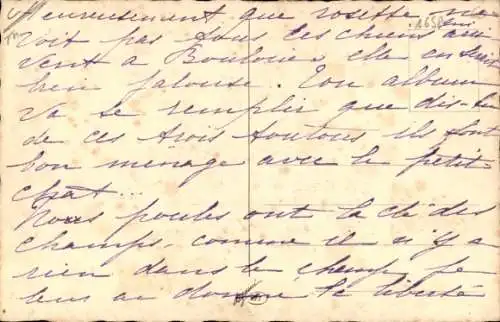 Heureusement que rosette ne
voit pas tous ces chiens qui
vont à elle en serait
bien jalouse. Ton album
va se remplir que dis-tu
de ces trois toutous ils font
bon menage avec le petit
chat...
Nos poules ont la clé des
champs, comme il n'y a
rien dans le champ je
leur ai donné la liberté